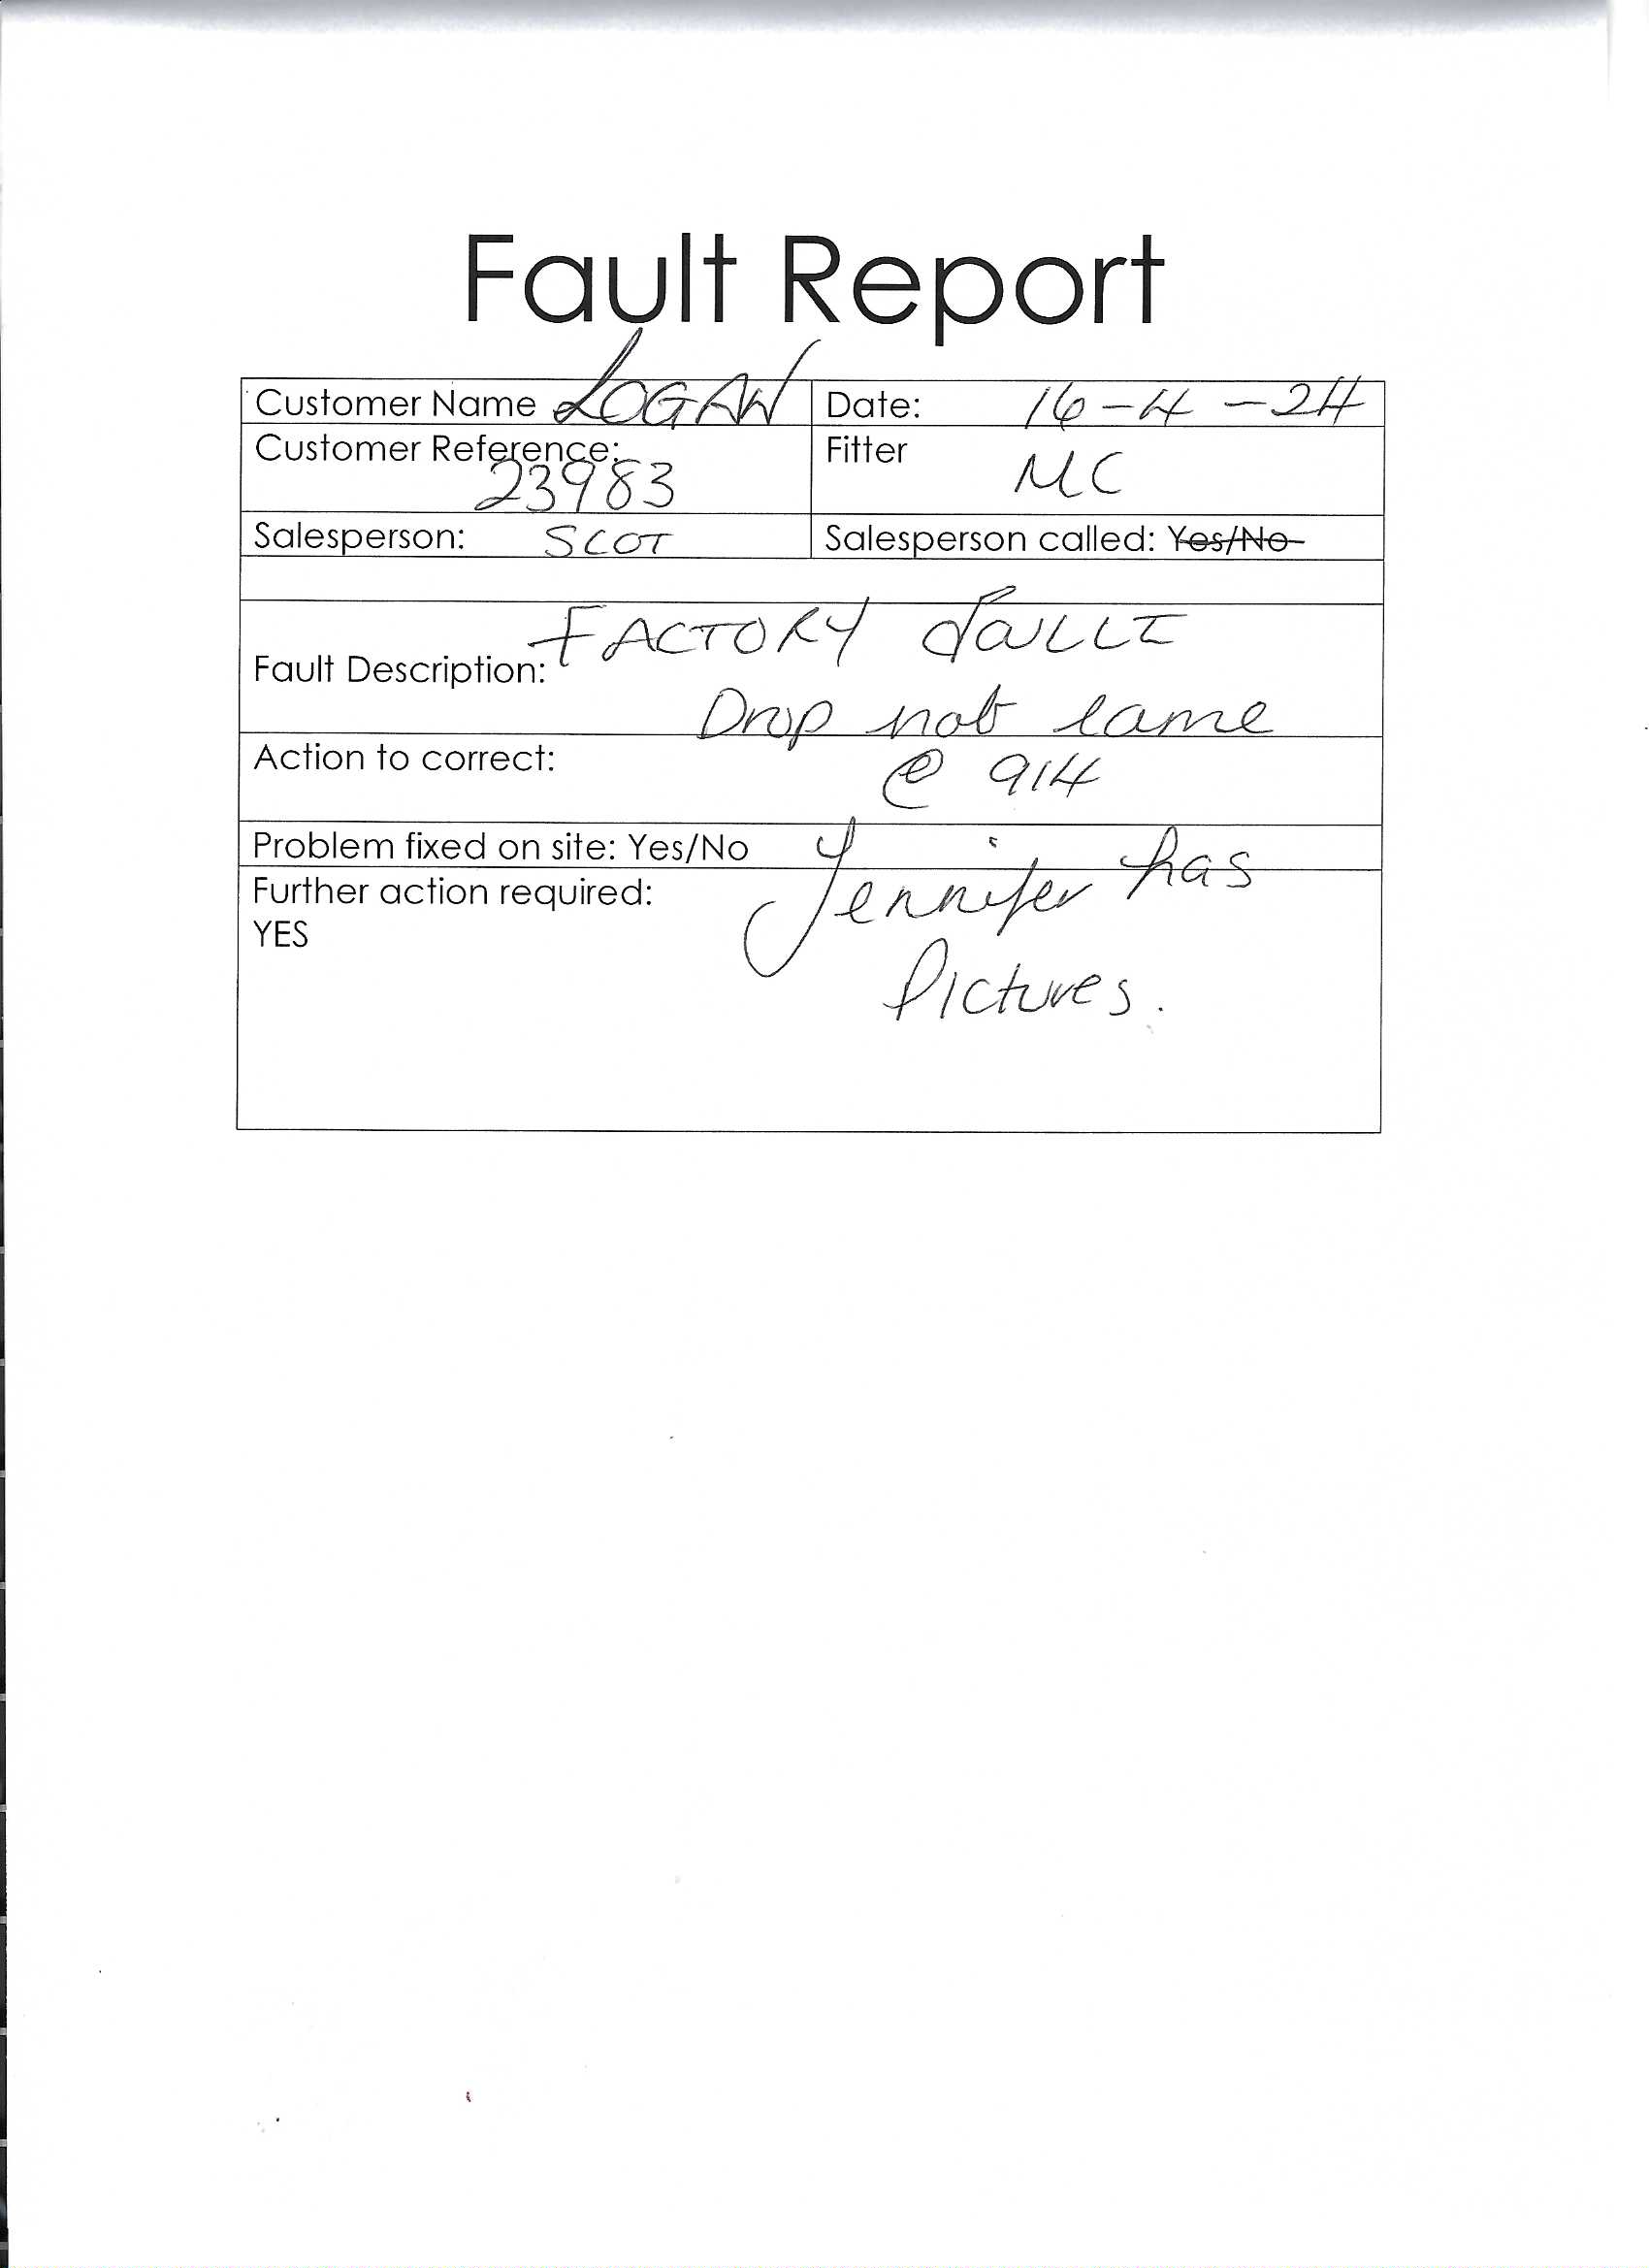 Fault Report
Customer Name LOGAN Date: 16-4-24
Customer Reference: 23983 Fitter MC
Salesperson: SCOT Salesperson called: Yes/No
FACTORY
Fault Description:
Drop not same
Action to correct: @ 914
Problem fixed on site: Yes/No
Further action required: Jennifer has
YES
Pictures.